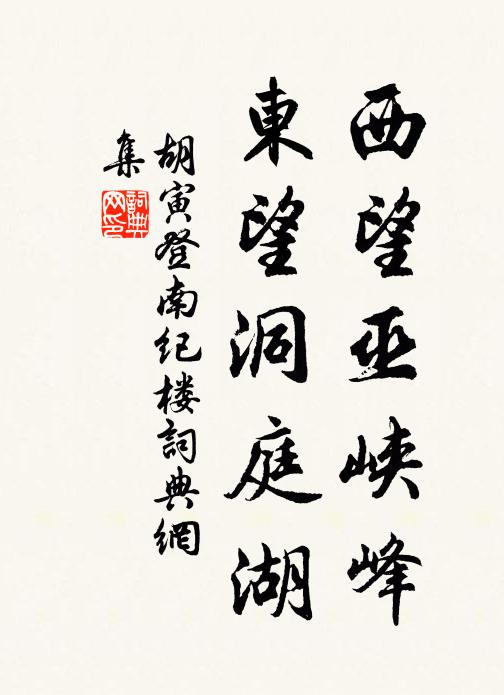 西望巫峡峰
東望洞庭湖
胡寅登南纪楼詞典網
集
詞典
网印